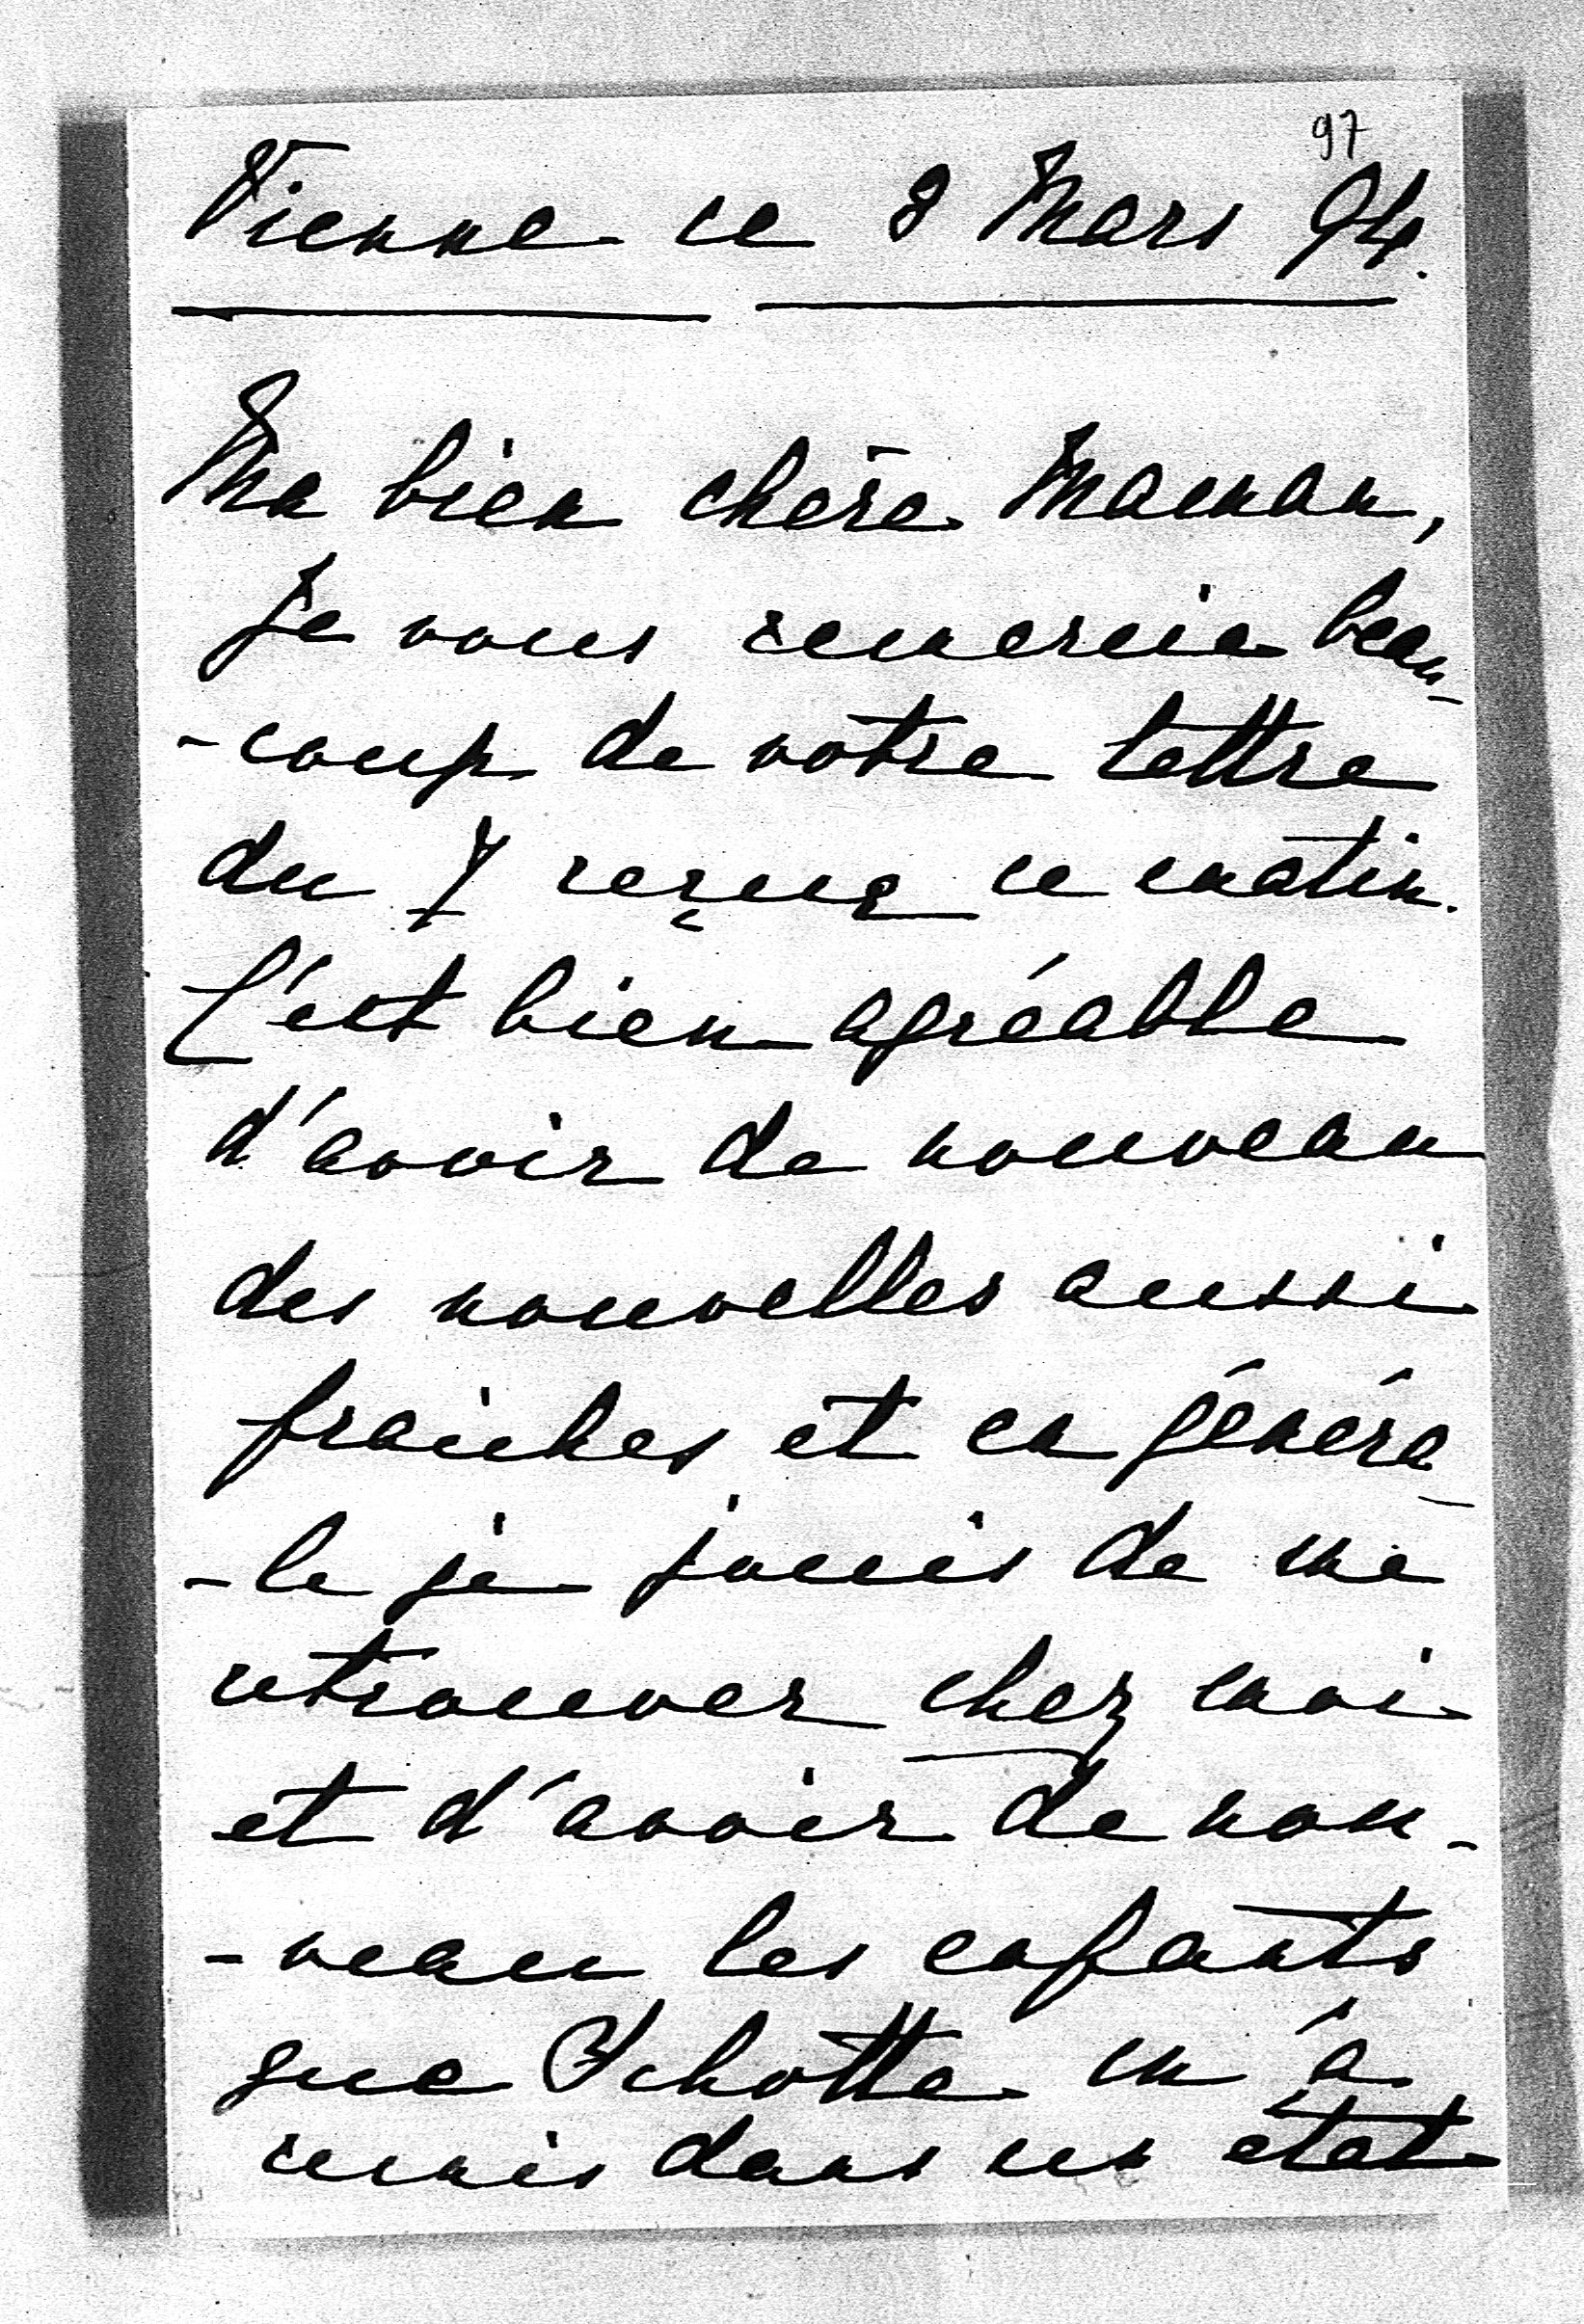 97
Vienne ce 8 Mars 94.
Ma bien chère Maman,
Je vous remercie beau-
-coup de votre lettre
du 7 reçue ce matin.
C'est bien agréable
d'avoir de nouveau
des nouvelles aussi
fraiches et en généra-
-le je jouis de me
retrouver chez moi
et d'avoir de nou-
-veau les enfants
que Schotte m'a
remis dans un état